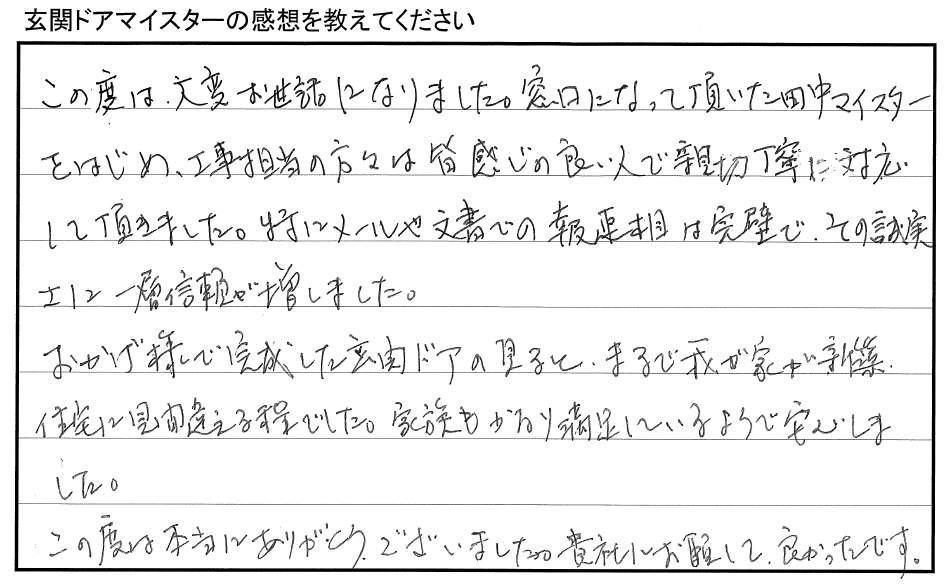 玄関ドアマイスターの感想を教えてください
この度は、大変お世話になりました。窓口になって頂いた田中マイスター
をはじめ、工事担当の方々は皆感じの良い人で親切丁寧に対応
して頂きました。特にメールや文書での報連相は完璧で、その誠実
さに一層信頼が増しました。
おかげ様で完成した玄関ドアの見ると、まるで我が家が新築
住宅に見間違える程でした。家族もかなり満足しているようで安心しま
した。
この度は本当にありがとうございました。貴社にお願して、良かったです。